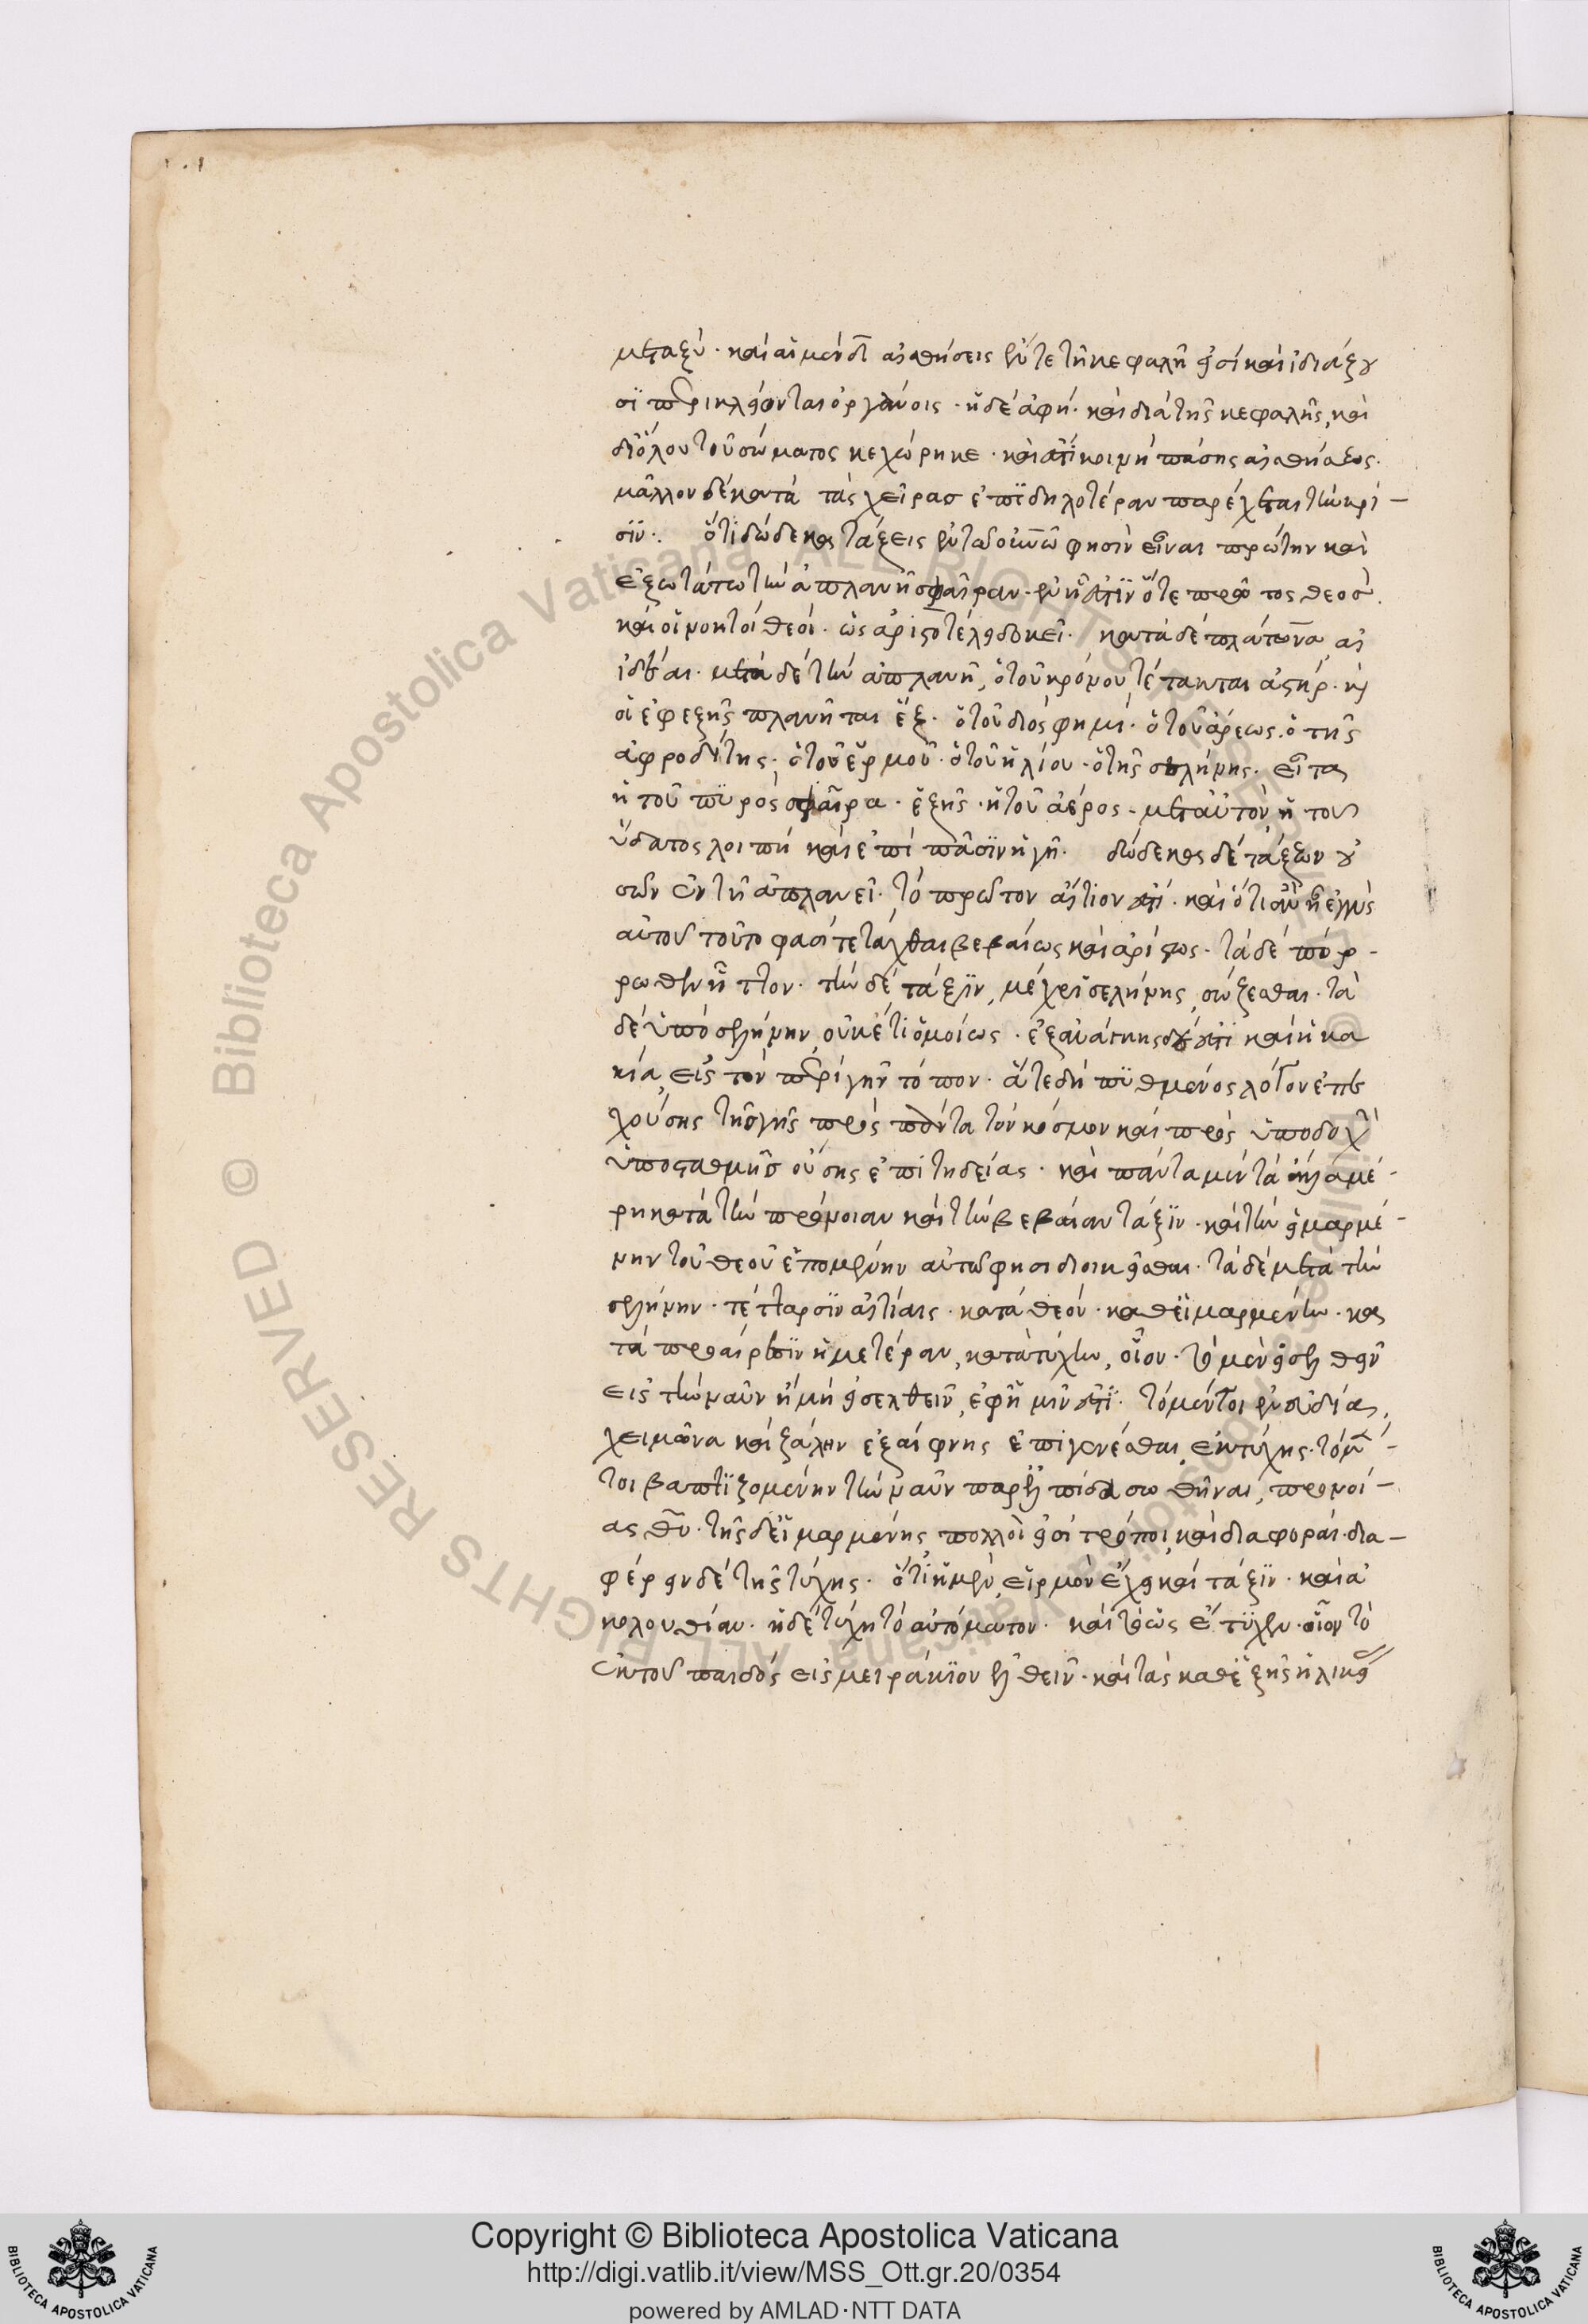 μεταξύ· καὶ αἱ μὲν δ̅ αἰσθήσεις ἔν τε τῆ κεφαλῆ εἰσὶ καὶ ἰδιάζου
σι περικλείονται ὀργάνοις· ἡ δὲ ἀφή· καὶ διὰ τῆς κεφαλῆς, καὶ
δι' ὅλου τοῦ σώματος κεχώρηκε· καὶ ἔστι κοινὴ πάσης αἰσθήσεως·
μᾶλλον δὲ κατὰ τὰς χεῖρας ἐπιδηλοτέραν παρέχεται τὴν κρί-
σιν·. ὅτι δώδεκα τάξεις φησὶν εἶναι πρώτην καὶ
ἐξωτάτω τὴν ἀπλανῆ σφαῖραν· ἐν ἧ ἐστὶν ὅ τε πρῶτος θεὸς
καὶ οἱ νοητοὶ θεοί· ὡς ἀριστοτέλει δοκεῖ· κατὰ δὲ πλάτωνα αἱ
ἰδέαι· μετὰ δὲ τὴν ἀπλανῆ, ὁ τοῦ κρόνου τέτακται ἀστήρ· κ
οἱ ἐφεξῆς πλανῆται ἕξ· ὁ τοῦ διός φημι· ὁ τοῦ ἄρεως· ὁ τῆς
ἀφροδίτης· ὁ τοῦ ἑρμοῦ· ὁ τοῦ ἡλίου· ὁ τῆς σελήνης· εἶτα
ἡ τοῦ πυρὸς σφαῖρα· ἑξῆς· ἡ τοῦ ἀέρος· μετ' αὐτὸν ἡ τοῦ
ὕδατος λοιπὴ καὶ ἐπὶ πᾶσιν ἡ γῆ· δώδεκα δὲ τάξεων οὐ
σῶν ἐν τῆ ἀπλανεῖ· τὸ πρῶτον αἴτιον ἐστί· καὶ ὅτι οὖν ἦ ἐγγὺς
αὐτοῦ τοῦτο φασὶ τετάχθαι βεβαίως καὶ ἀρίστως· τὰ δὲ πόρ-
ρωθεν ἧττον· τὴν δὲ τάξιν, μέχρι σελήνης, σώζεσθαι· τὰ
δὲ ὑπὸ σελήνην, οὐκέτι ὁμοίως· ἐξ ἀνάγκης οὖν ἐστὶ καὶ ἡ κα
κία, εἰς τὸν περὶ γῆν τόπον· ἅτε δὴ πυθμένος λόγον ἐπε
χούσης τῆς γῆς πρὸς πάντα τὸν κόσμον καὶ πρὸς ὑποδοχὴ
ὑποσταθμῆς οὔσης ἐπιτηδείας· καὶ πάντα μὲν τὰ ἄλλα μέ-
ρη κατὰ τὴν πρόνοιαν καὶ τὴν βεβαίαν τάξιν· καὶ τὴν εἱμαρμέ-
νην τοῦ θεοῦ ἑπομένην αὐτῶ φησι διοικεῖσθαι· τὰ δὲ μετὰ τὴν
σελήνην· τέτταρσιν αἰτίαις· κατὰ θεόν· καθ' εἱμαρμένην· κα
τὰ προαίρεσιν ἡμετέραν, κατὰ τύχην, οἷον· τὸ μὲν εἰσελθεῖν
εἰς τὴν ναῦν ἢ μὴ εἰσελθεῖν, ἐφ' ἡμῖν ἐστί· τὸ μέντοι ἐν εὐδία,
χειμῶνα καὶ ζάλην ἐξαίφνης ἐπιγενέσθαι ἐκ τύχης· τὸ μέν-
τοι βαπτιζομένην τὴν ναῦν παρ' ἐλπίδα σωθῆναι, προνοί-
ας θ̅υ̅· τῆς δὲ εἱμαρμένης πολλοὶ εἰσι τρόποι καὶ διαφοραί· δια-
φέρειν δὲ τῆς τύχης· ὅτι ἡ μὲν, εἱρμὸν ἔχει καὶ τάξιν· καὶ ἀ
κολουθίαν· ἡ δὲ τύχη τὸ αὐτόματον· καὶ τὸ ὡς ἔτυχεν· οἷον τὸ
ἐκ τοῦ παιδὸς εἰς μειράκιον ἐλθεῖν· καὶ τὰς καθεξῆς ἡλικίας
Copyright © Biblioteca Apostolica Vaticana
http://digi.vatlib.it/view/MSS_Ott.gr.20/0354
powered by AMLAD·NTT DATA